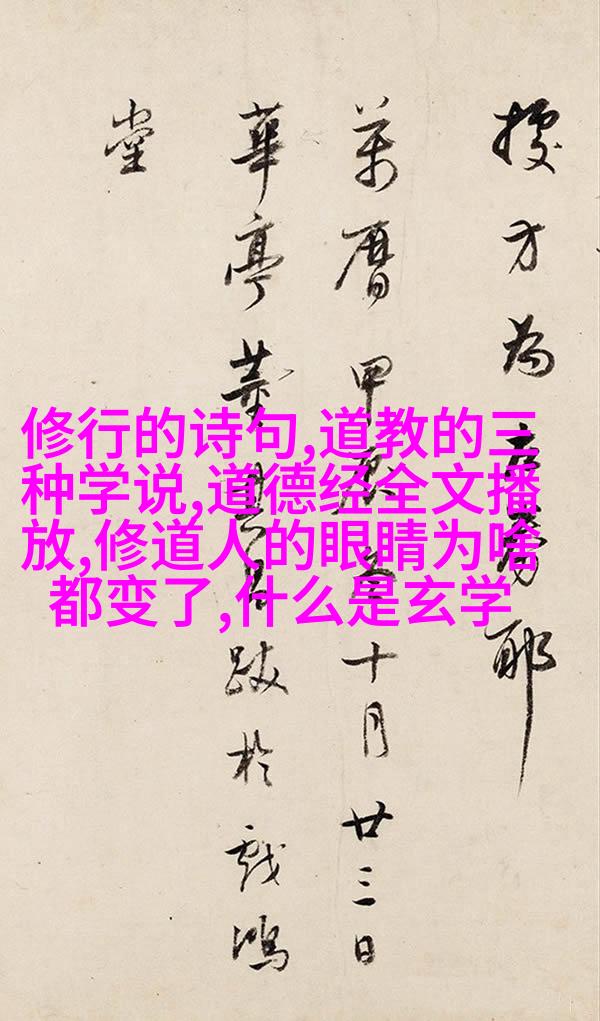 方為耶
萬曆甲辰十月廿三日
華亭董其昌跋於戲鴻
堂
修行的诗句,道教的三
种学说,道德经全文播
放,修道人的眼睛为啥
都变了,什么是玄学